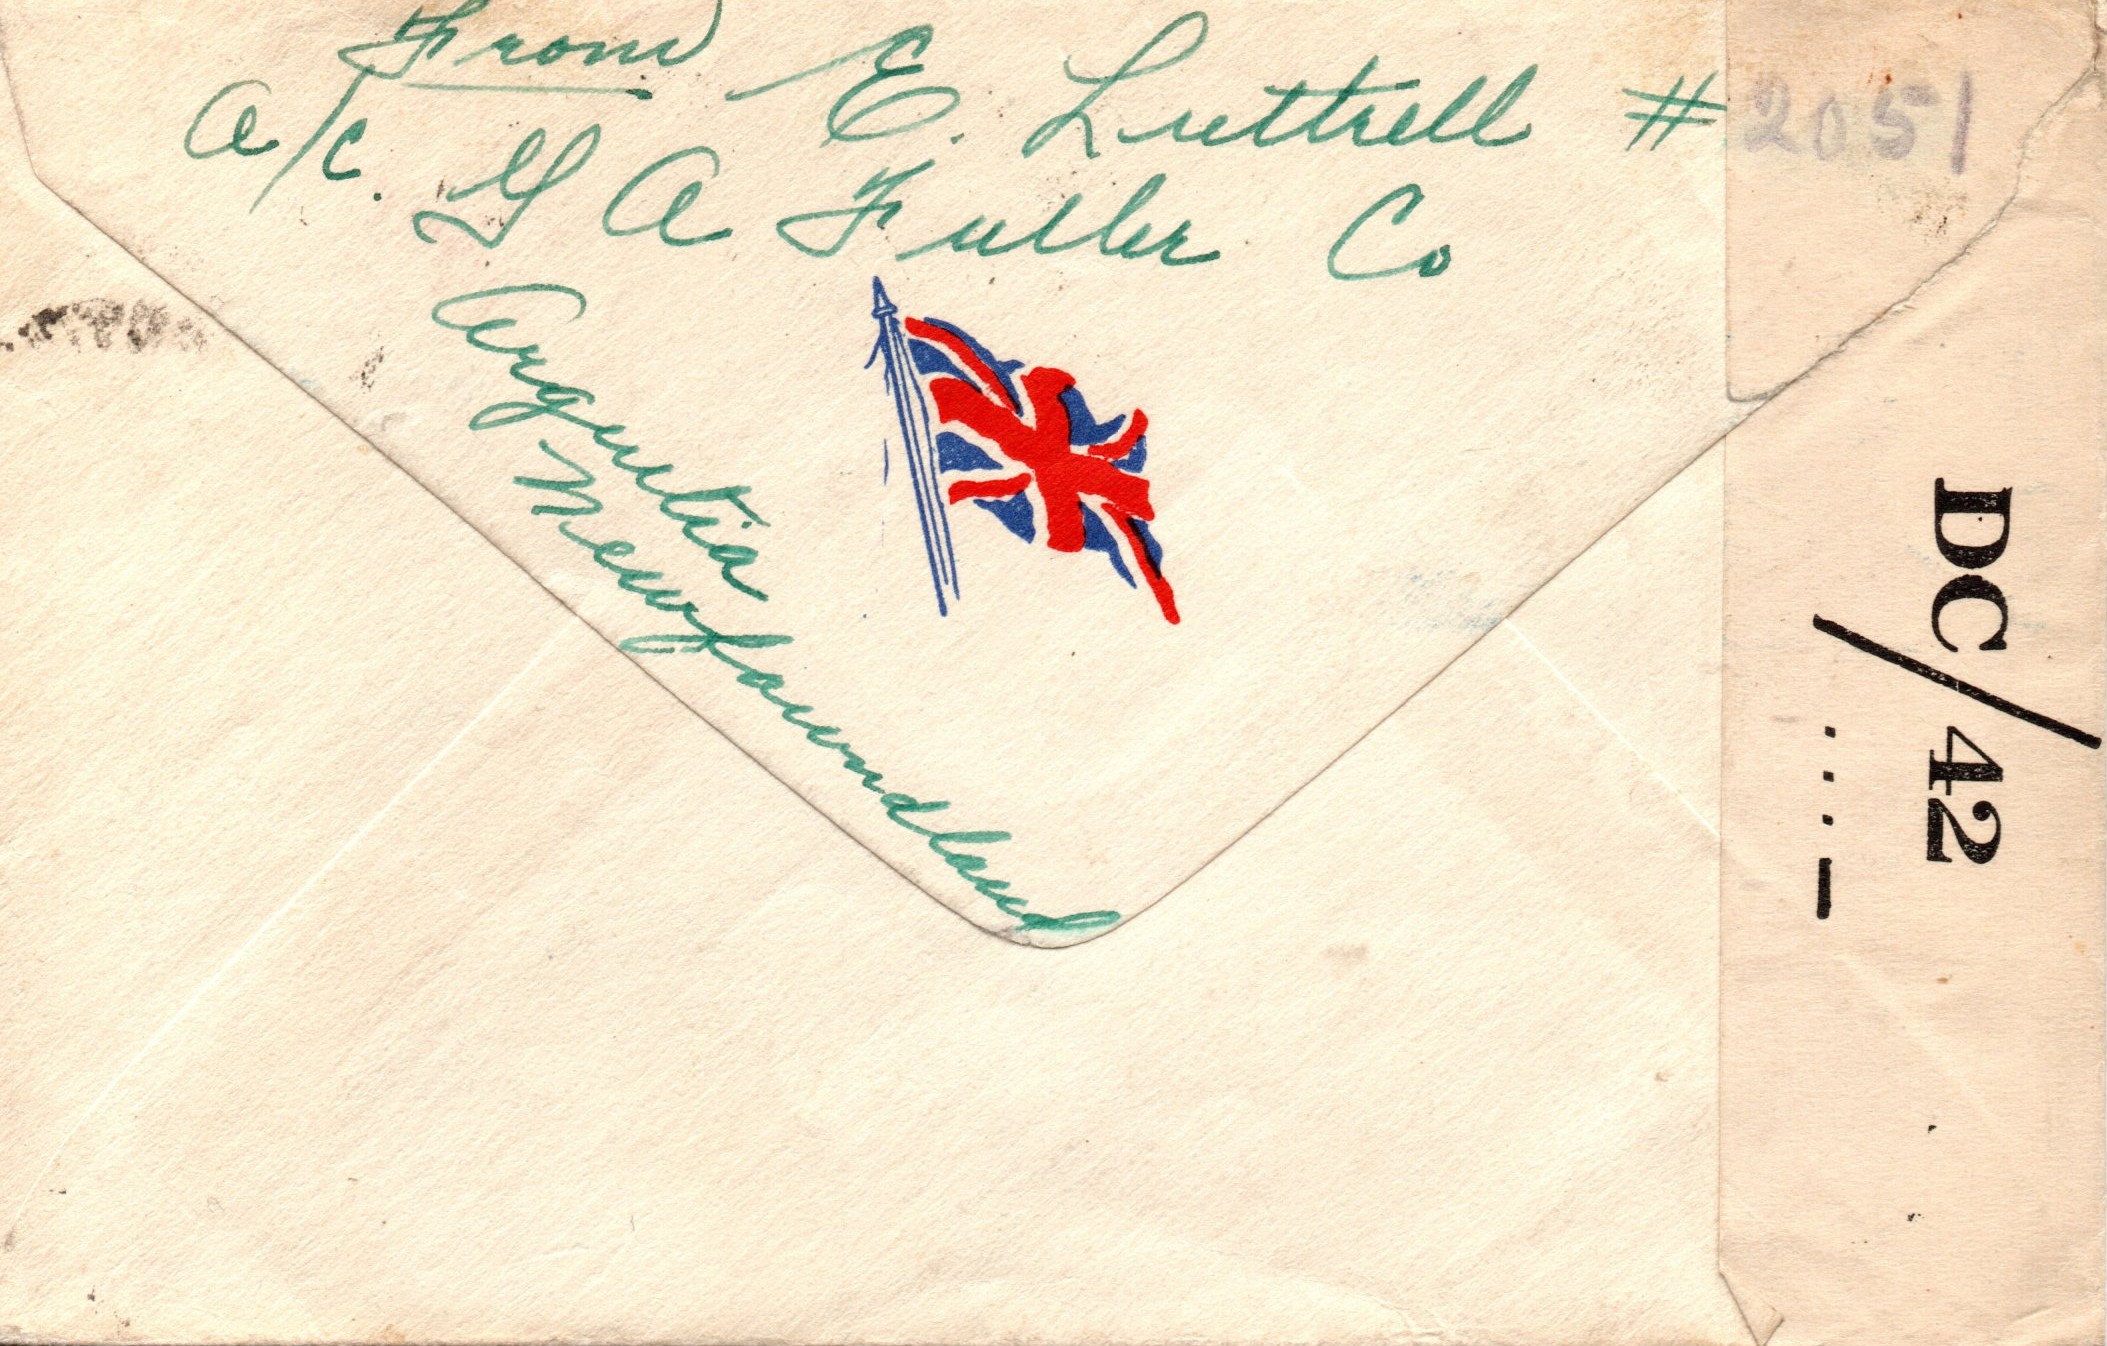 From E. Luttrell # 2051
a/c. G A Fuller Co
Argentia
Newfoundland
DC/42